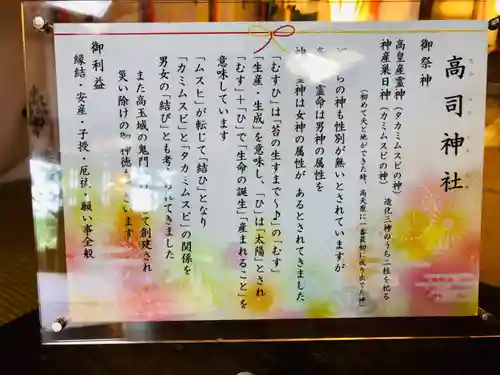 高司神社
御祭神
高皇産霊神（タカミムスビの神）
神産巣日神（カミムスビの神）
造化三神のうち二柱を祀る
（初めて天と地ができた時、高天原に一番最初に成り出でた神）
らの神も性別が無いとされていますが
霊命は男神の属性を
神は女神の属性が あるとされてきました
「むすひ」は「苔の生すまで〜♪」の「むす」
「生産・生成」を意味し、「ひ」は「太陽」とされ
「むす」＋「ひ」で「生命の誕生」「産まれること」を
意味しています
「ムスヒ」が転じて「結ひ」となり
「カミムスビ」と「タカミムスビ」の関係を
男女の「結び」とも考 られてきました
また高玉城の鬼門 して創建され
災い除けの
御利益
縁結・安産・子授・厄祓・願い事全般